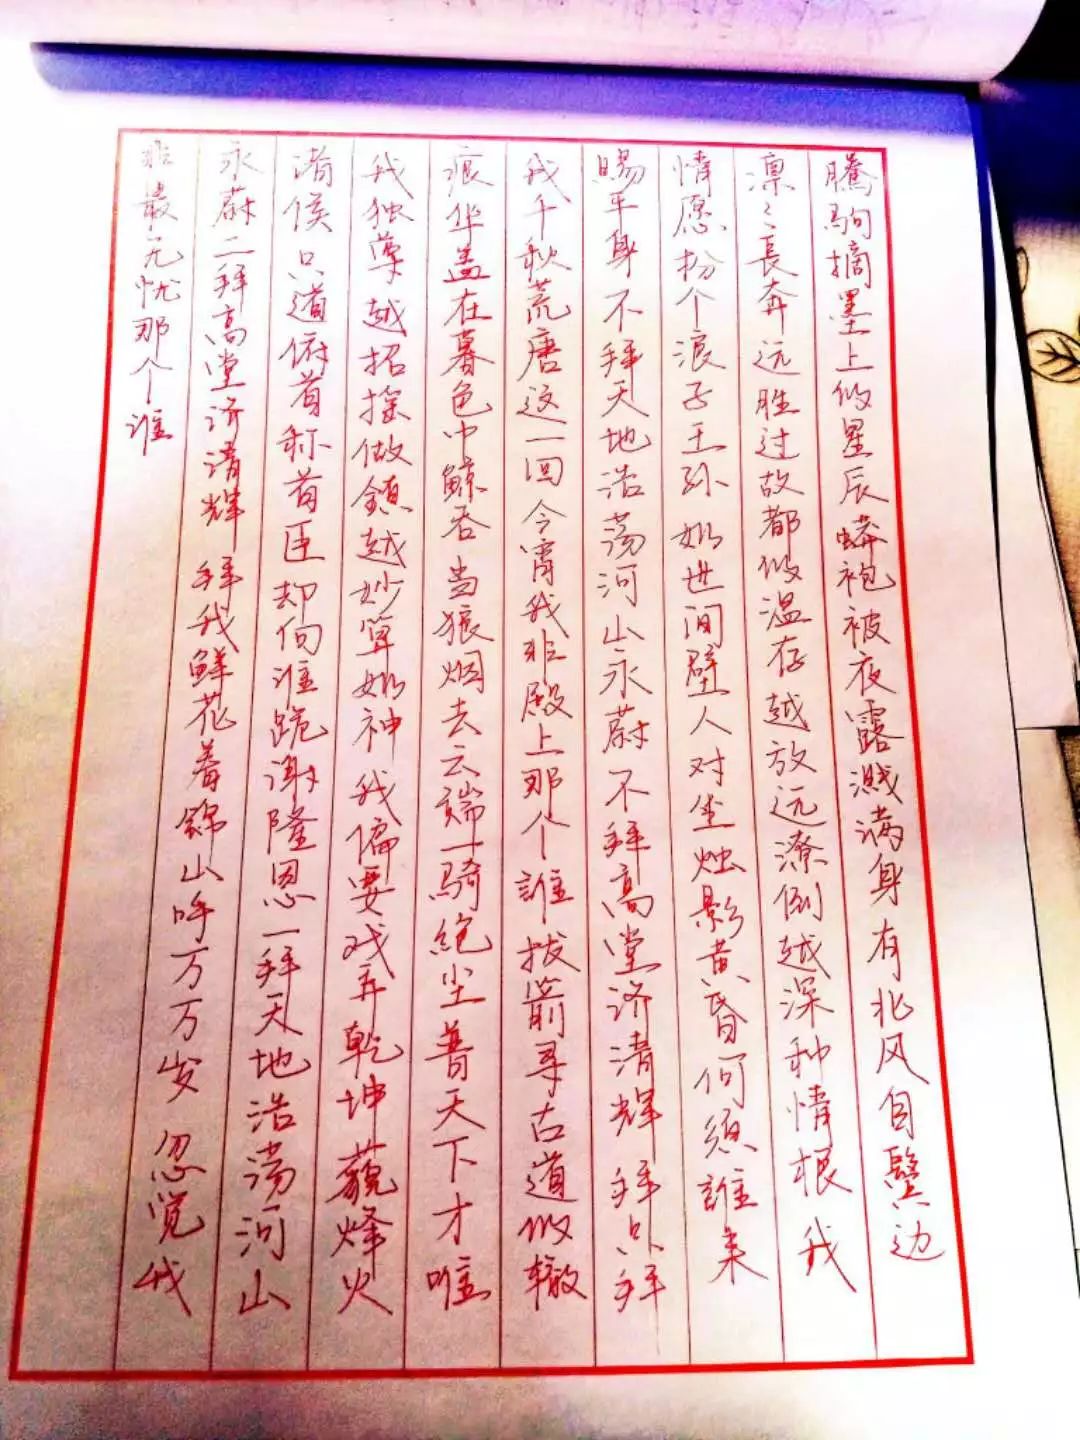 騰駒摘墨上似星辰蟒袍被夜露溅满身有北风自鬓边
凛々長奔远胜过故都似温存越放远潦倒越深种情根我
情愿扮个浪子王孙如世间璧人对坐烛影黄昏何须誰来
賜平身不拜天地浩荡河山永蔚不拜高堂济清辉拜只拜
我千秋荒唐这一回今宵我非殿上那个誰拔箭寻古道似辙
痕华盖在暮色中鲸吞当狼烟去云端一騎絶尘普天下才唯
我独尊越招摇做鎮越妙算如神我偏要戏弄乾坤藐烽火
诸侯只道俯首称首臣却向谁跪谢隆恩一拜天地浩荡河山
永蔚二拜高堂济清辉 拜我鲜花着錦山呼万万岁 忽觉我
非最无忧那个谁